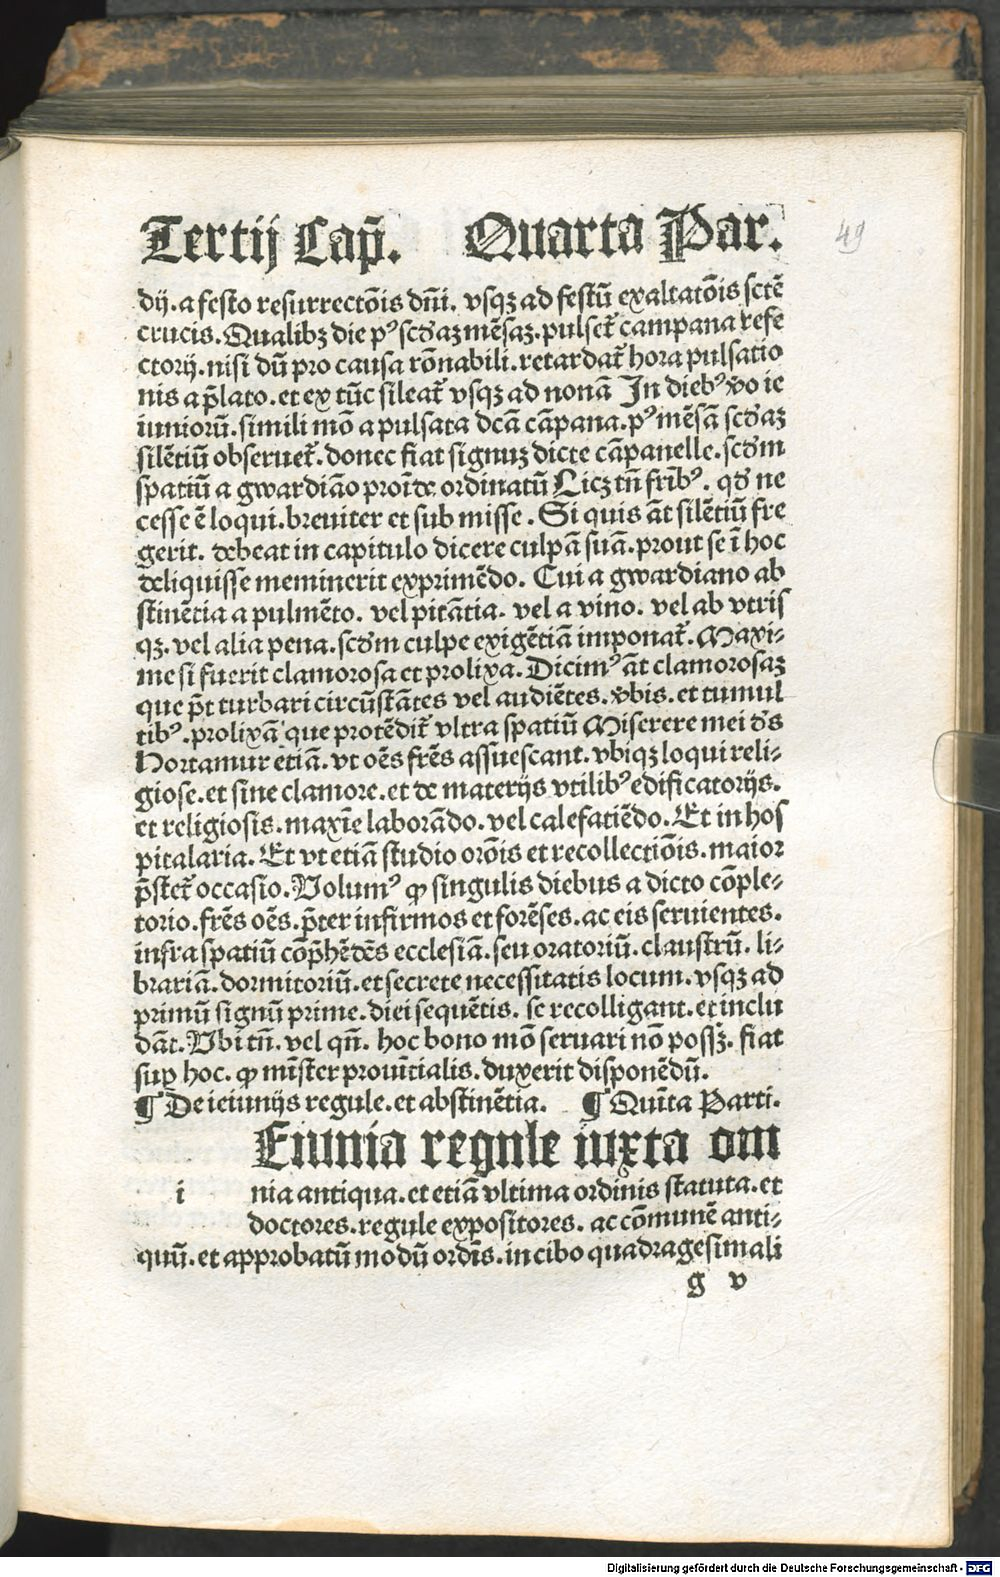 Tertij Cap̃. Quarta Par.
49
dij. a festo resurrectõis dñi. vsqꝫ ad festũ exaltatõis sctẽ
crucis. Qualibꝫ die pꝰ scđaꝫ mẽsaꝫ. pulset᷑ campana refe
ctorij. nisi dũ pro causa rõnabili. retardat᷑ hora pulsatio
nis a p̃lato. et ex tũc sileat᷑ vsqꝫ ad nonã In diebꝰ v̾o ie
iuniorũ. simili mõ a pulsata dcã cãpana. pꝰ mẽsã scđaꝫ
silẽtiũ obseruet᷑. donec fiat signuꝫ dicte cãpanelle. scđm
spatiũ a gwardião proĩde ordinatũ Licꝫ tñ frĩbꝰ. qđ ne
cesse ẽ loqui. breuiter et sub misse. Si quis ãt silẽtiũ fre
gerit. debeat in capitulo dicere culpã suã. prout se ĩ hoc
deliquisse meminerit exprimẽdo. Cui a gwardiano ab
stinẽtia a pulmẽto. vel pitãtia. vel a vino. vel ab vtris
qꝫ. vel alia pena. scđm culpe exigẽtiã imponat᷑. Maxi⸗
me si fuerit clamorosa et prolixa. Dicimꝰ ãt clamorosaꝫ
que p̃t turbari circũstãtes vel audiẽtes. v̾bis. et tumul
tibꝰ. prolixã que protẽdit᷑ vltra spatiũ Miserere mei đs
Hortamur etiã. vt oẽs frẽs assuescant. vbiqꝫ loqui reli⸗
giose. et sine clamore. et de materijs vtilibꝰ edificatorijs.
et religiosis. maxĩe laborãdo. vel calefatiẽdo. Et in hos
pitalaria. Et vt etiã studio orõis et recollectiõis. maior
p̃stet᷑ occasio. Volumꝰ ꝙ singulis diebus a dicto cõple⸗
torio. frẽs oẽs. p̃ter infirmos et forẽses. ac eis seruientes.
infra spatiũ cõp̃hẽdẽs ecclesiã. seu oratoriũ. claustrũ. li⸗
brariã. dormitoriũ. et secrete necessitatis locum. vsqꝫ ad
primũ signũ prime. diei sequẽtis. se recolligant. et inclu
dãt. Vbi tñ. vel qñ. hoc bono mõ seruari nõ possꝫ. fiat
suꝑ hoc. ꝙ mĩster prouĩtialis. duxerit disponẽdũ.
¶ De ieiunijs regule. et abstinẽtia. ¶ Quĩta Parti.
Eiunia regule iuxta om
i nia antiqua. et etiã vltima ordinis statuta. et
doctores. regule expositores. ac cõmunẽ anti⸗
quũ. et approbatũ modũ ordĩs. in cibo quadragesimali
g v
Digitalisierung gefördert durch die Deutsche Forschungsgemeinschaft - DFG